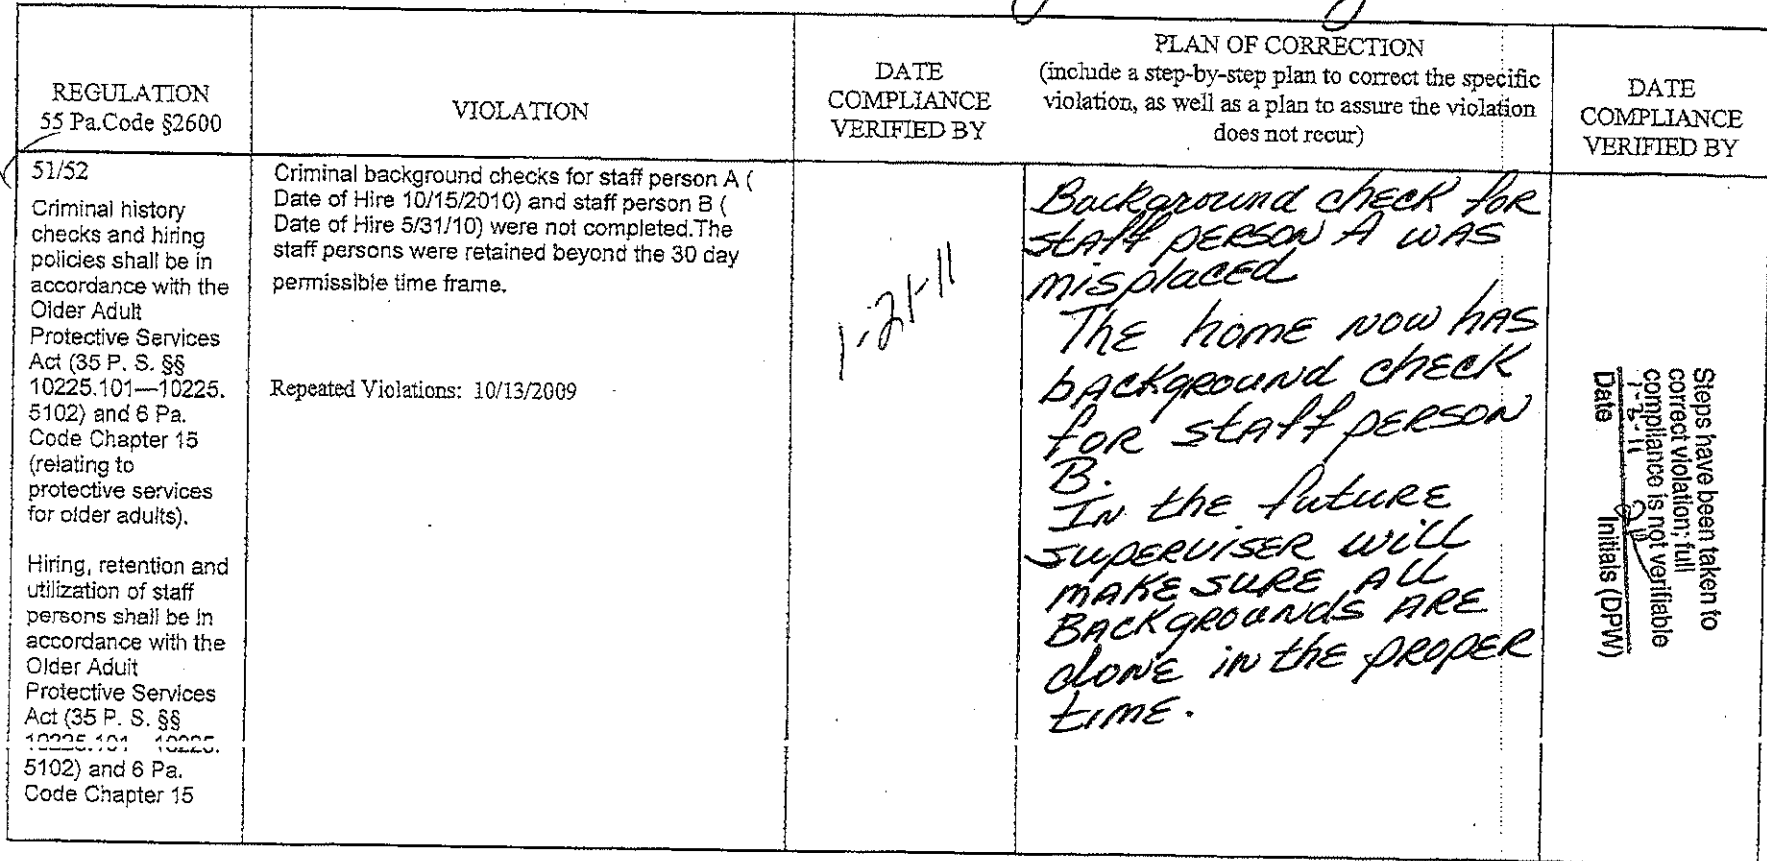 REGULATION
55 Pa.Code §2600
VIOLATION
DATE
COMPLIANCE
VERIFIED BY
PLAN OF CORRECTION
(include a step-by-step plan to correct the specific
violation, as well as a plan to assure the violation
does not recur)
DATE
COMPLIANCE
VERIFIED BY
51/52
Criminal history
checks and hiring
policies shall be in
accordance with the
Older Adult
Protective Services
Act (35 P. S. §§
10225.101—10225.
5102) and 6 Pa.
Code Chapter 15
(relating to
protective services
for older adults).
Hiring, retention and
utilization of staff
persons shall be in
accordance with the
Older Adult
Protective Services
Act (35 P. S. §§
10225.101—10225.
5102) and 6 Pa.
Code Chapter 15
Criminal background checks for staff person A (
Date of Hire 10/15/2010) and staff person B (
Date of Hire 5/31/10) were not completed.The
staff persons were retained beyond the 30 day
permissible time frame.
Repeated Violations: 10/13/2009
1-21-11
Background check for
staff person A was
misplaced
The home now has
background check
for staff person
B.
In the future
superviser will
make sure all
Backgrounds are
done in the proper
time.
Steps have been taken to
correct violation; full
compliance is not verifiable
Date Initials (DPW)